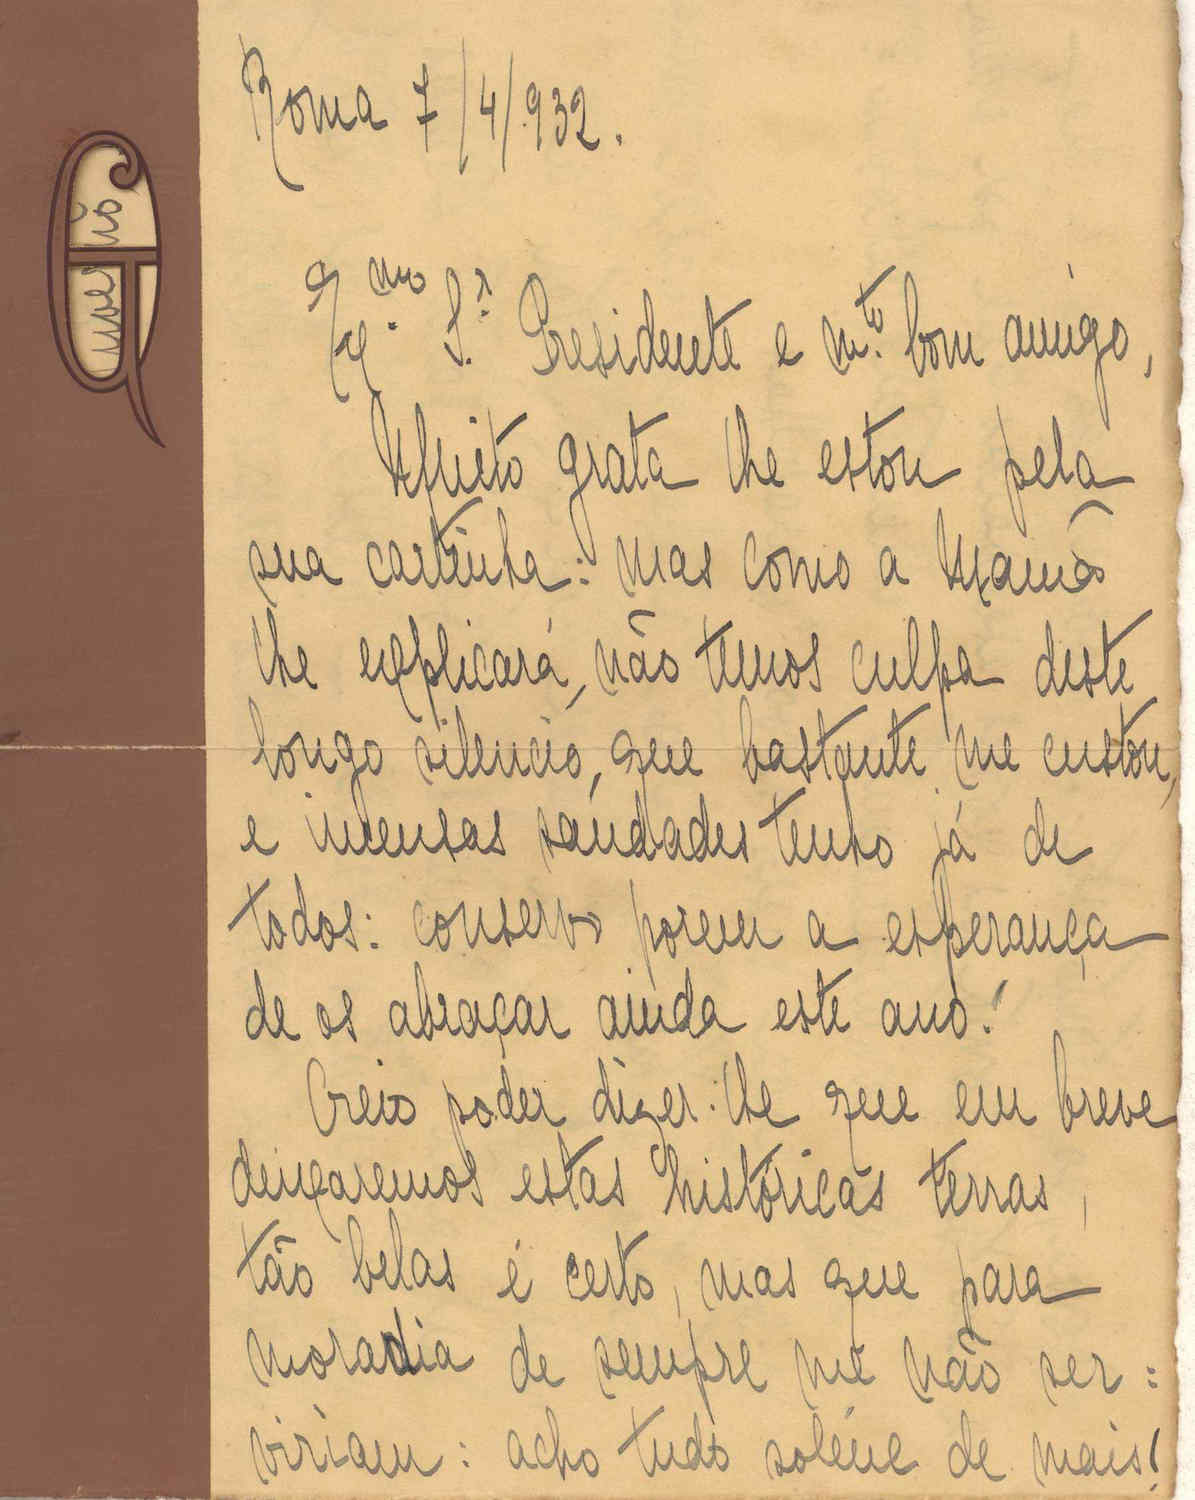 Roma 7/4/932.
Exmo. Sr. Presidente e mto. bom amigo,
Muito grata lhe estou pela
sua cartinha: mas como a Mamã
lhe explicará, não temos culpa deste
longo silencio, que bastante me custou,
e imensas saúdades tenho já de
todos: conservo porem a esperança
de os abraçar ainda este ano!
Creio poder dizer-lhe que em breve
deixaremos estas históricas terras,
tão belas é certo, mas que para
moradia de sempre me não ser:
viriam: acho tudo soléne de mais!